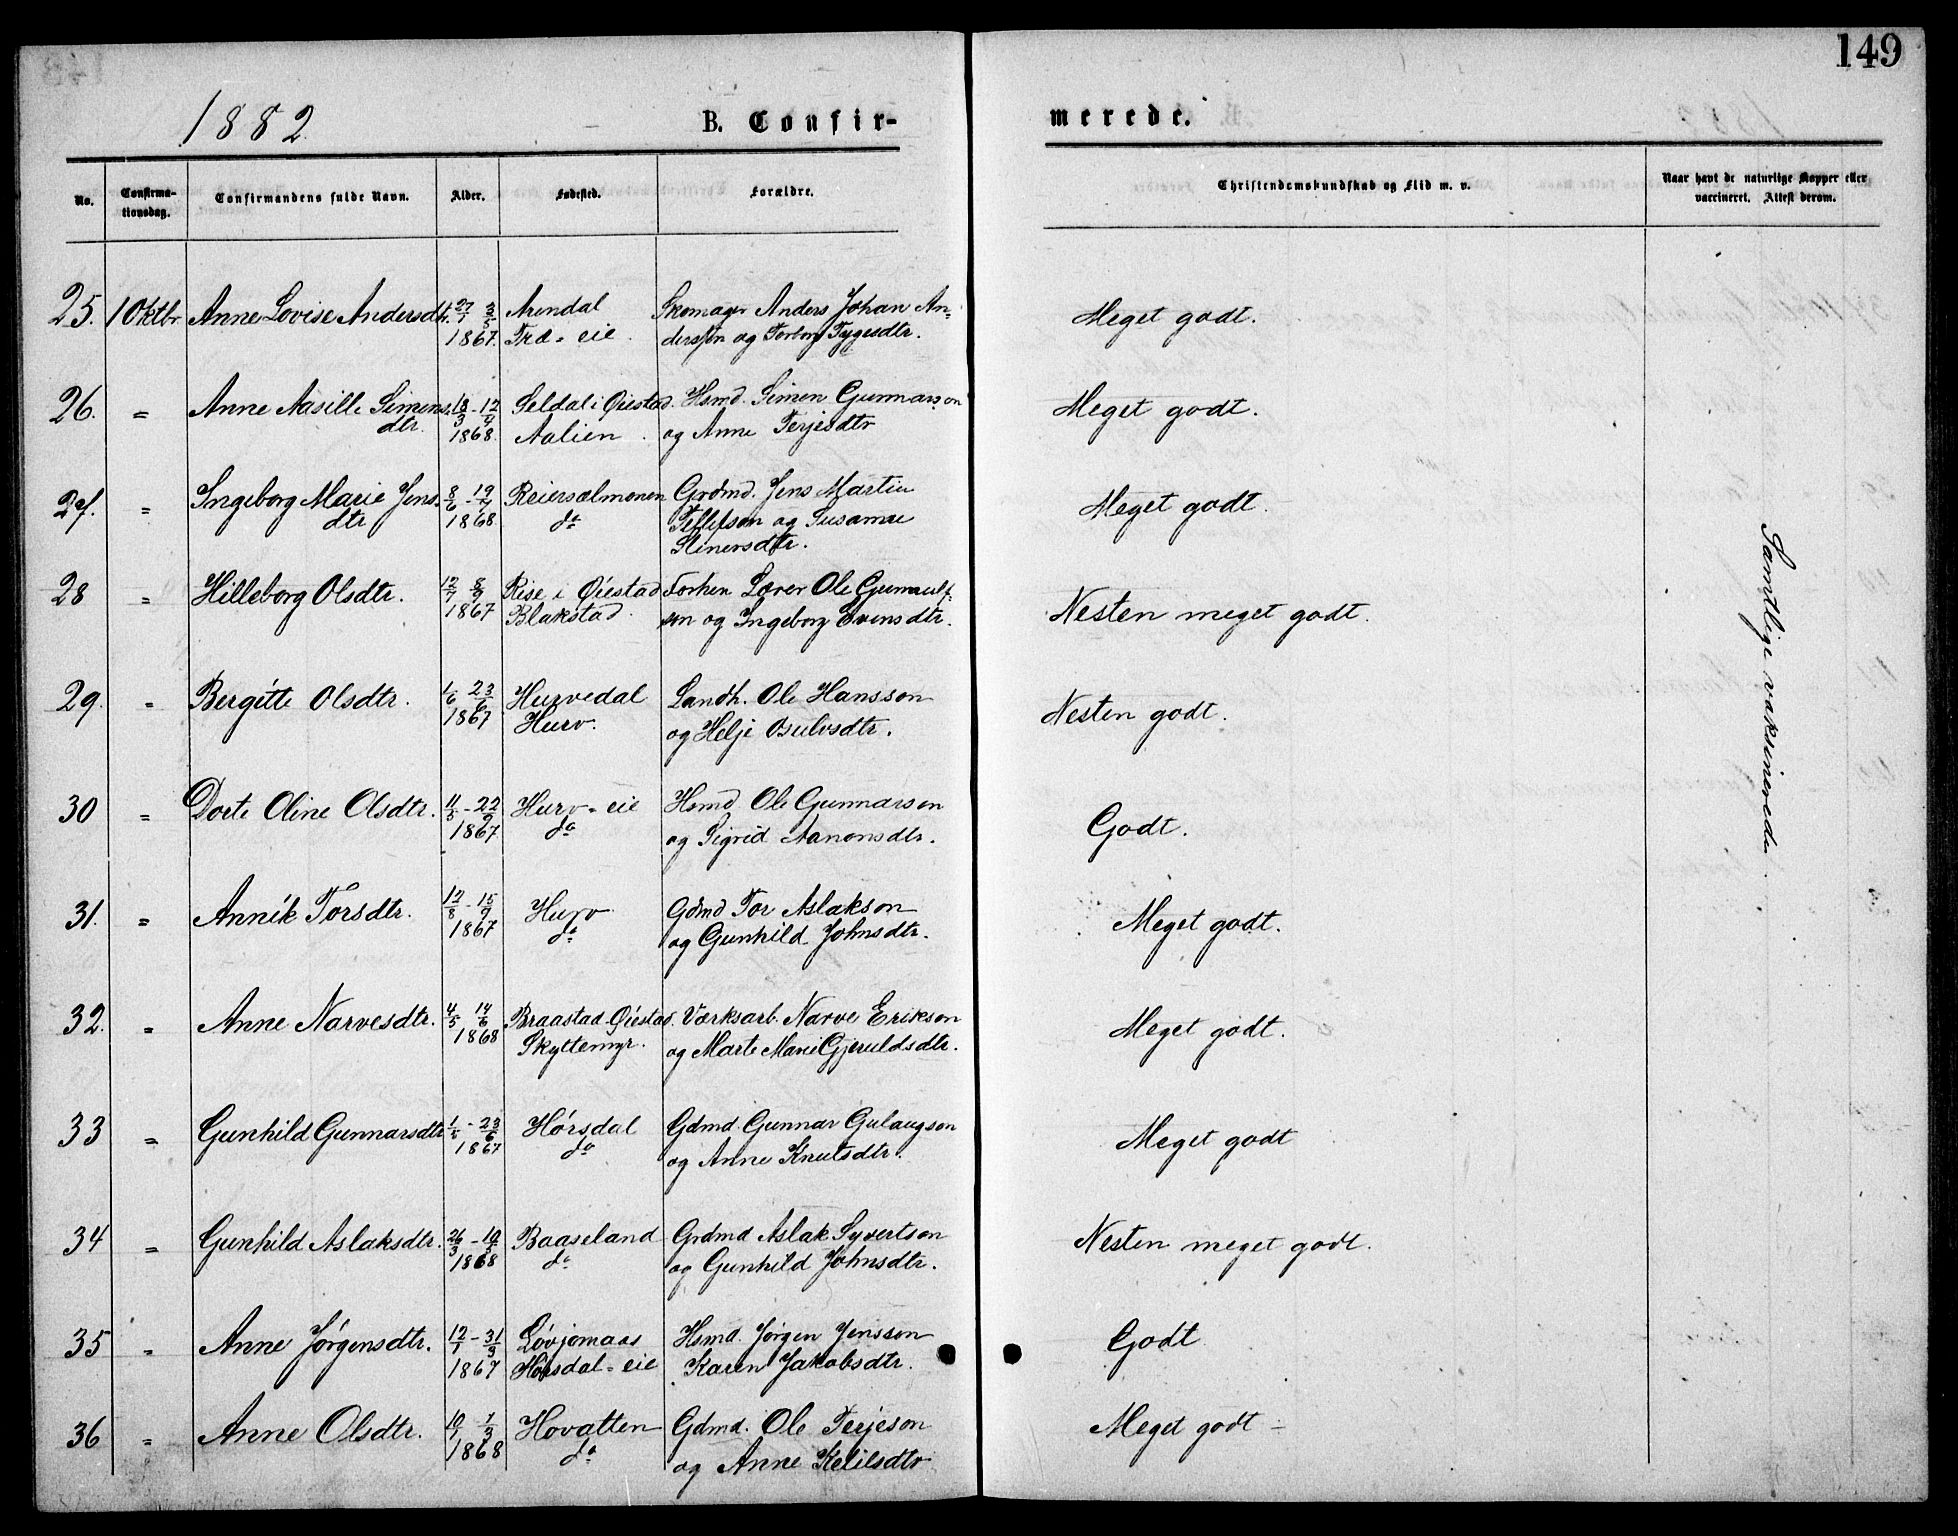 149
1882.
B. Confirmerede.
No.
Confirmationsdag.
Confirmandens fulde Navn.
Alder.
Fødested.
Forældre.
Christendomskundskab og Flid m. v.
Naar havt de naturlige Kopper eller
vaccineret. Attest derom.
25. 1 Oktbr. Anne Lovise Andersdtr. 27/1 3/5 Arendal Skomager Anders Johan An-
1867. Træ-eie. dersson og Torborg Tygesdtr. Meget godt.
26. " Anne Aasille Simens 18/3 - 12/4 Seldal i Øiestad. Hsmd. Simen Gunnarson
dtr. 1868. Aalien. og Anne Terjesdtr Meget godt.
27. " Ingeborg Marie Jens. 8/6 - 19/7 Reiersølmonen Grdmd. Jens Martin
dtr 1868 do Tellefson og Susanne Meget godt.
Stinersdtr.
28 " Hilleborg Olsdtr. 12/7 8/9 Rise i Øiestad Forhen Lærer Ole Gunnulf-
1867 Blakstad. son og Ingeborg Evensdtr. Nesten meget godt.
29. " Bergitte Olsdtr. 1/6 23/6 Hurvedal Landh. Ole Hansson
1867 Hurv. og Helje Osulvsdtr. Nesten godt.
30 " Dorte Oline Olsdtr. 11/5 - 22/9 Hurv-eie Hsmd Ole Gunnarson
1867 do og Sigrid Aanonsdtr. Godt.
31. " Annik Torsdtr. 12/8 - 15/9 Hurv Gdmd Tor Aslakson
1867 do og Gunhild Johnsdtr. Meget godt.
32. " Anne Narvesdtr. 4/5 14/6 Braastad Øiestad. Værksarb. Narve Erikson
1868 Skyttemyr. og Marte Marie Gjeruldsdtr. Meget godt.
33 " Gunhild Gunnarsdtr 1/5 - 23/6 Hørsdal Gdmd. Gunnar Gulaugson
1867 do og Anne Knutsdtr. Meget godt
34 " Gunhild Aslaksdtr. 26/3 - 10/5 Baaseland Grdmd Aslak Syvertson
1868 do og Gunhild Johnsdtr. Nesten meget godt.
35 " Anne Jørgensdtr. 12/1 - 31/3 Løvjomaas Hsmd. Jørgen Jensson
1867 Hørsdal-eie Karen Jakobsdtr. Godt
36 " Anne Olsdtr. 10/1 1/3 Hovatten Gdmd. Ole Terjeson
1868 do og Anne Kelilsdtr Meget godt -
Samtlige vaksinerede.